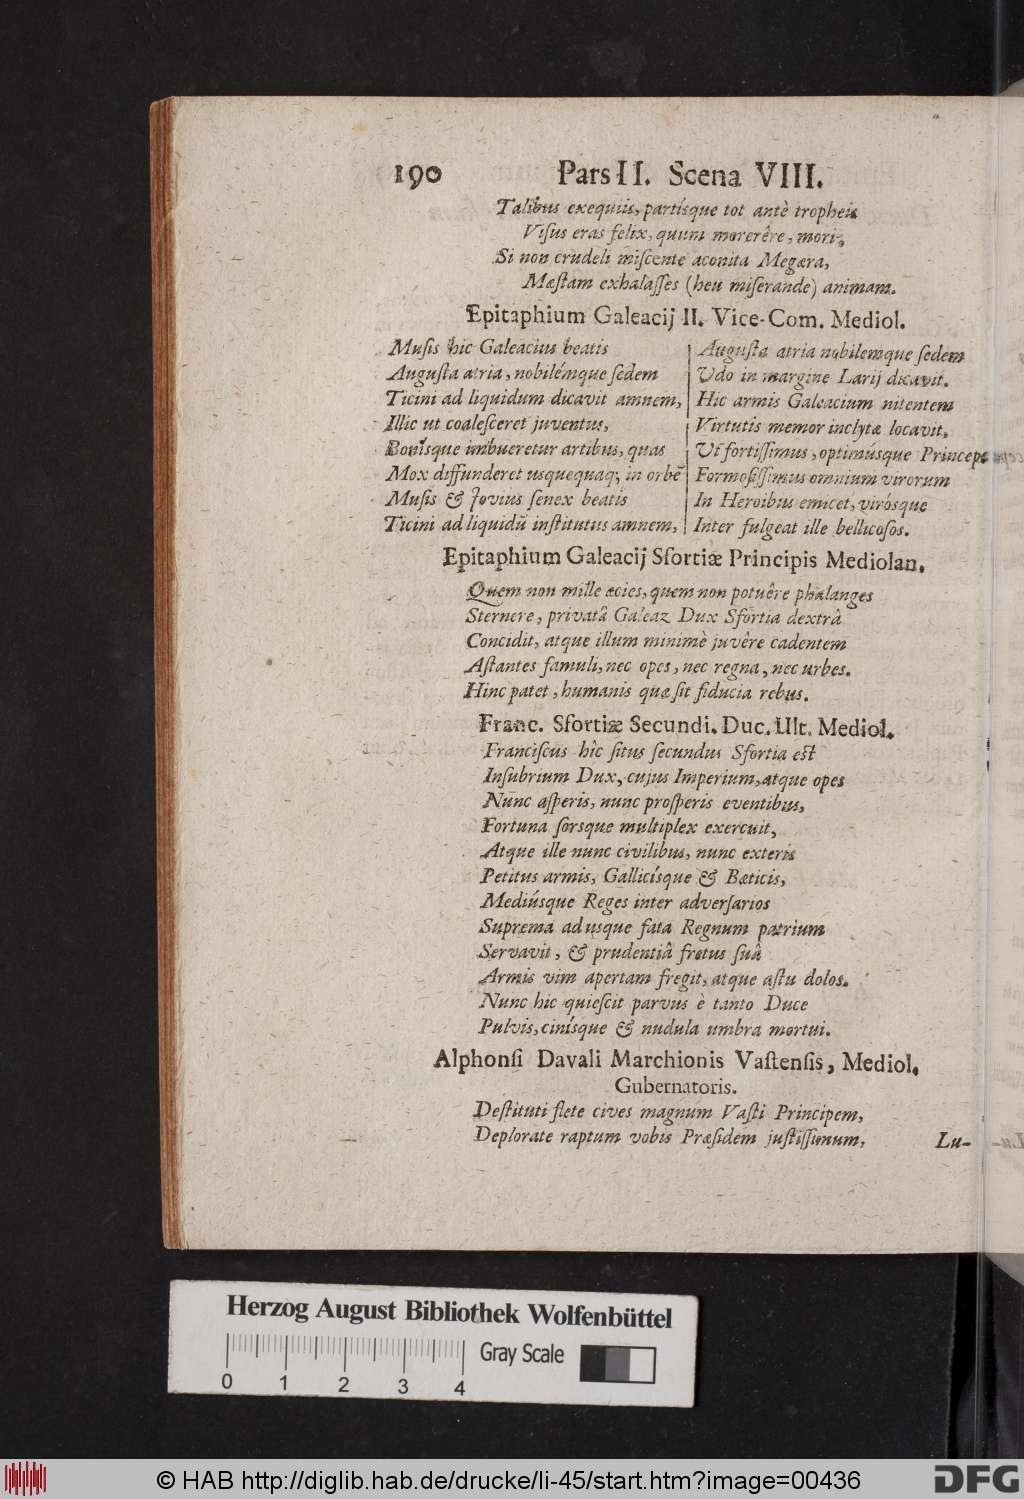 190 Pars II. Scena VIII.
Talibus exequiis, partísque tot antè tropheis
Visus eras felix, quum morerêre, mori,
Si non crudeli miscente aconita Megæra,
Mæstam exhalasses (heu miserande) animam.
Epitaphium Galeacij II. Vice-Com. Mediol.
Musis hic Galeacius beatis
Augusta atria, nobilémque sedem
Ticini ad liquidum dicavit amnem,
Illic ut coalesceret juventus,
Bonísque imbueretur artibus, quas
Mox diffunderet usquequaq; in orbē
Musis & Jovius senex beatis
Ticini ad liquidū institutus amnem,
Augusta atria nobilemque sedem
Udo in margine Larij dicavit.
Hic armis Galeacium nitentem
Virtutis memor inclytæ locavit,
Ut fortissimus, optimúsque Princeps
Formosissimus omnium virorum
In Heroibus emicet, virósque
Inter fulgeat ille bellicosos.
Epitaphium Galeacij Sfortiæ Principis Mediolan.
Quem non mille acies, quem non potuêre phalanges
Sternere, privatâ Galeaz Dux Sfortia dextrâ
Concidit, atque illum minimè juvêre cadentem
Astantes famuli, nec opes, nec regna, nec urbes.
Hinc patet, humanis quæ sit fiducia rebus.
Franc. Sfortiæ Secundi. Duc. Ult. Mediol.
Franciscus hîc situs secundus Sfortia est
Insubrium Dux, cujus Imperium, atque opes
Nunc asperis, nunc prosperis eventibus,
Fortuna sorsque multiplex exercuit,
Atque ille nunc civilibus, nunc exteris
Petitus armis, Gallicísque & Bæticis,
Mediúsque Reges inter adversarios
Suprema ad usque fata Regnum patrium
Servavit, & prudentiâ fretus suâ
Armis vim apertam fregit, atque astu dolos.
Nunc hic quiescit parvus è tanto Duce
Pulvis, cinísque & nudula umbra mortui.
Alphonsi Davali Marchionis Vastensis, Mediol.
Gubernatoris.
Destituti flete cives magnum Vasti Principem,
Deplorate raptum vobis Præsidem justissimum,
Lu-
Herzog August Bibliothek Wolfenbüttel
Gray Scale
0 1 2 3 4
© HAB http://diglib.hab.de/drucke/li-45/start.htm?image=00436
DFG